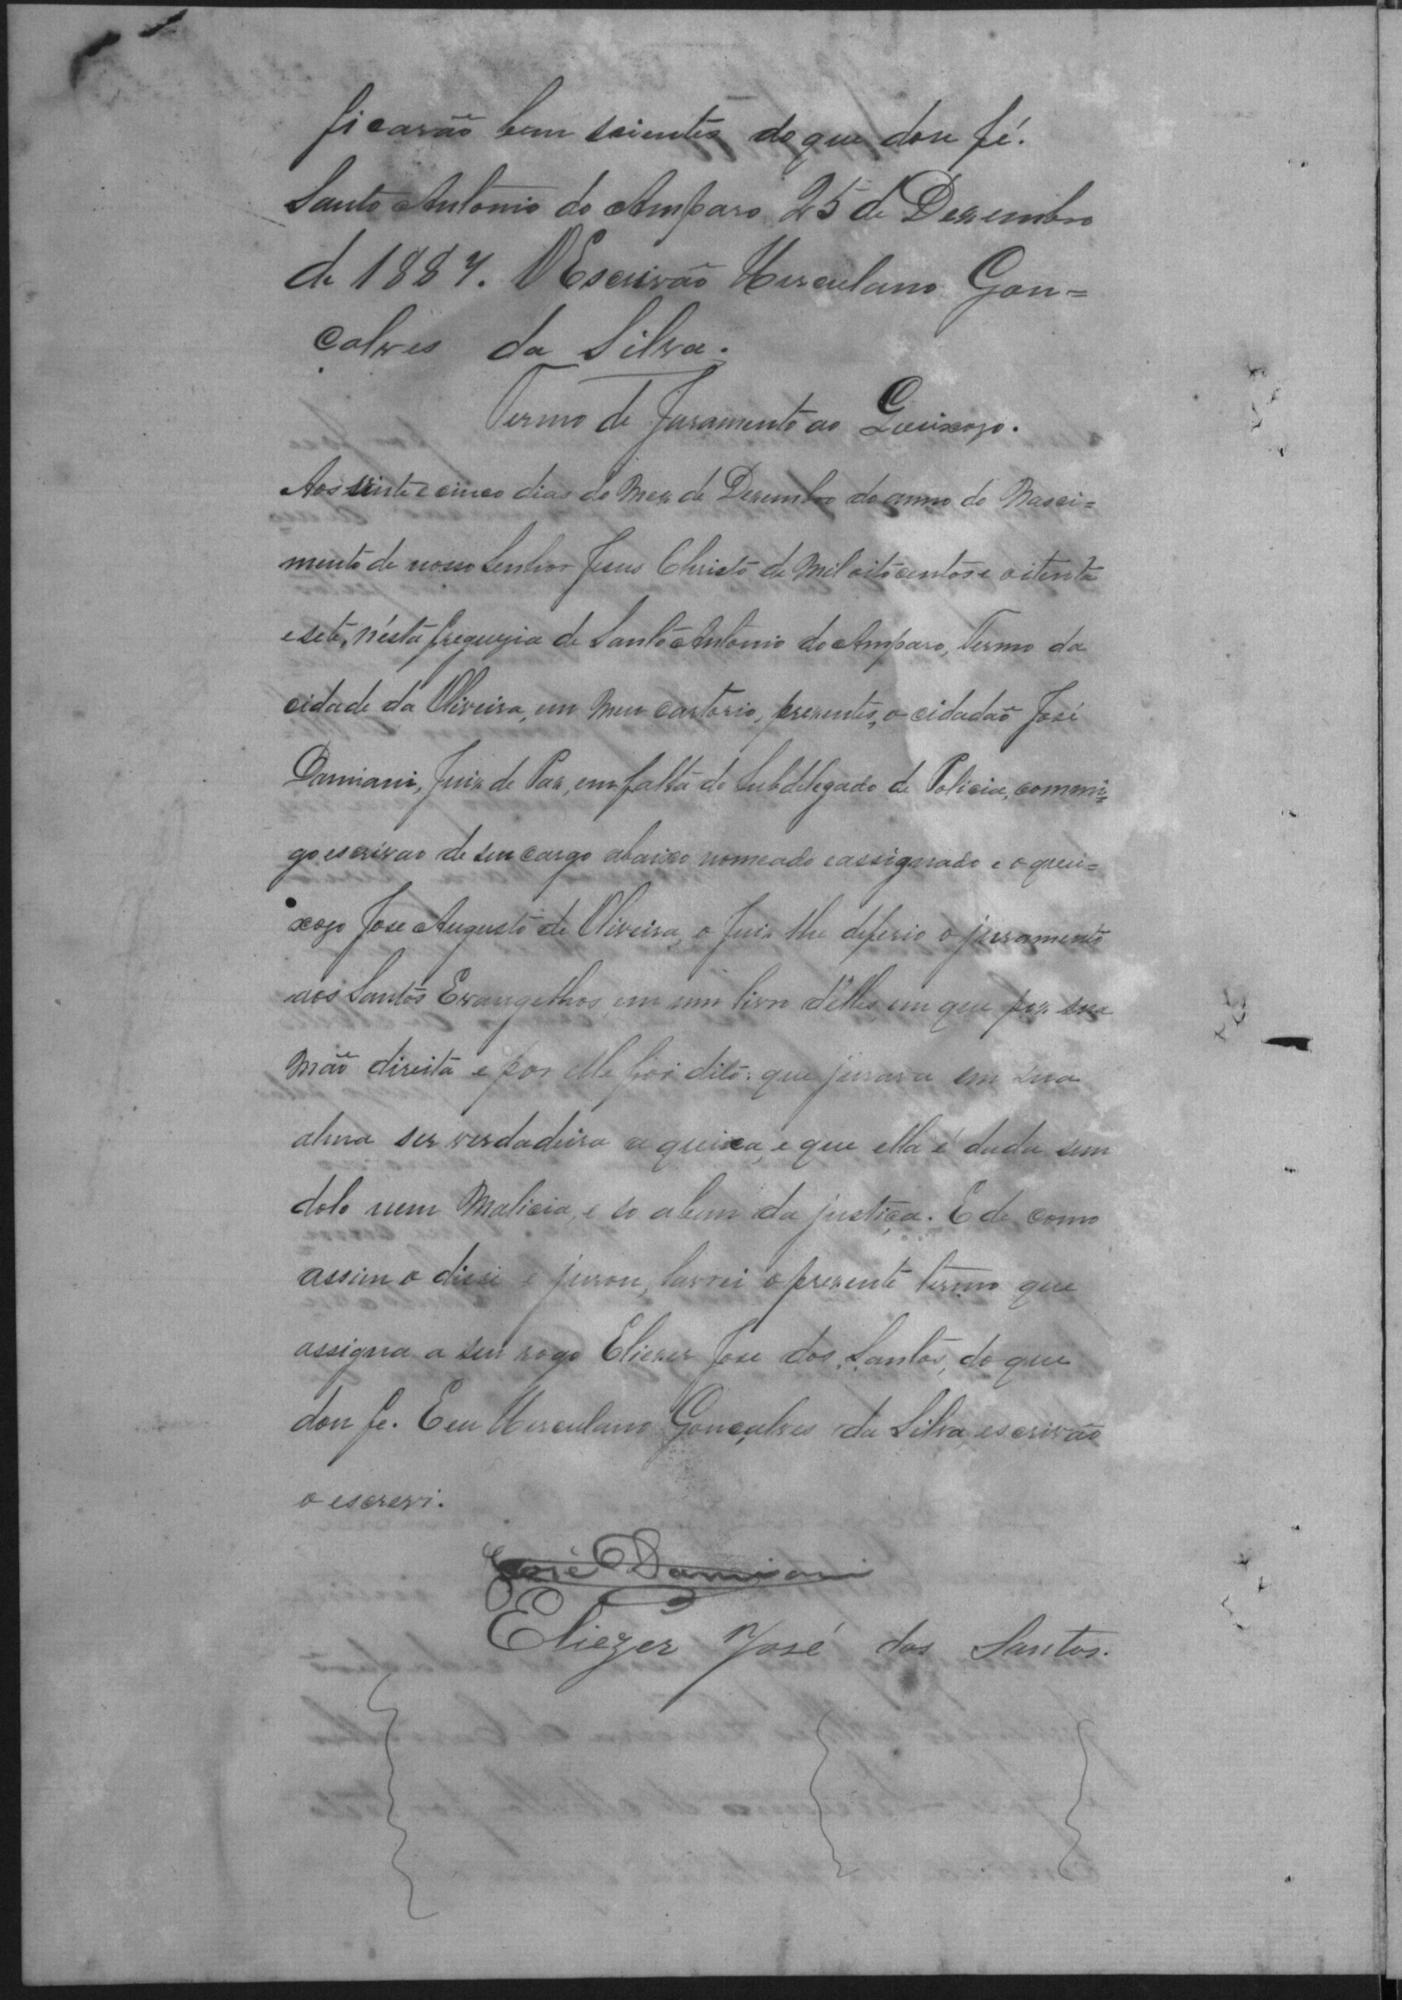 ficarão bem scientes do que dou fé.
Santo Antonio do Amparo 25 de Dezembro
de 1887. O Escrivão Herculano Gon=
çalves da Silva.
Termo de Juramento ao Queixozo.
Aos vinte e cinco dias do Mez de Dezembro do anno do Nasci=
mento de nosso Senhor Jesus Christo de Mil oitocentos e oitenta
e sete, n'ésta freguezia de Santo Antonio do Amparo, Termo da
cidade da Oliveira, em Meu cartorio, prezentes, o cidadão José
Damiani, Juiz de Paz, em falta do Subdelegado de Policia, commi=
go escrivao de seu cargo abaixo nomeado e assignado e o quei=
xozo Jose Augusto de Oliveira, o Juiz lhe deferio o juramento
aos Santos Evangelhos, em um livro d'elles, em que poz sua
Mão direita e por elle foi dito: que jurava em sua
alma ser verdadeira a queixa, e que ella é dada sem
dolo nem Malicia, e so a bem da justiça. E de como
assim o disse e jurou, lavrei o prezente termo que
assigna a seu rogo Eliezer Jose dos Santos, do que
dou fe. E eu Herculano Gonçalves da Silva, escrivão
o escrevi.
José Damiani
Eliezer José dos Santos.